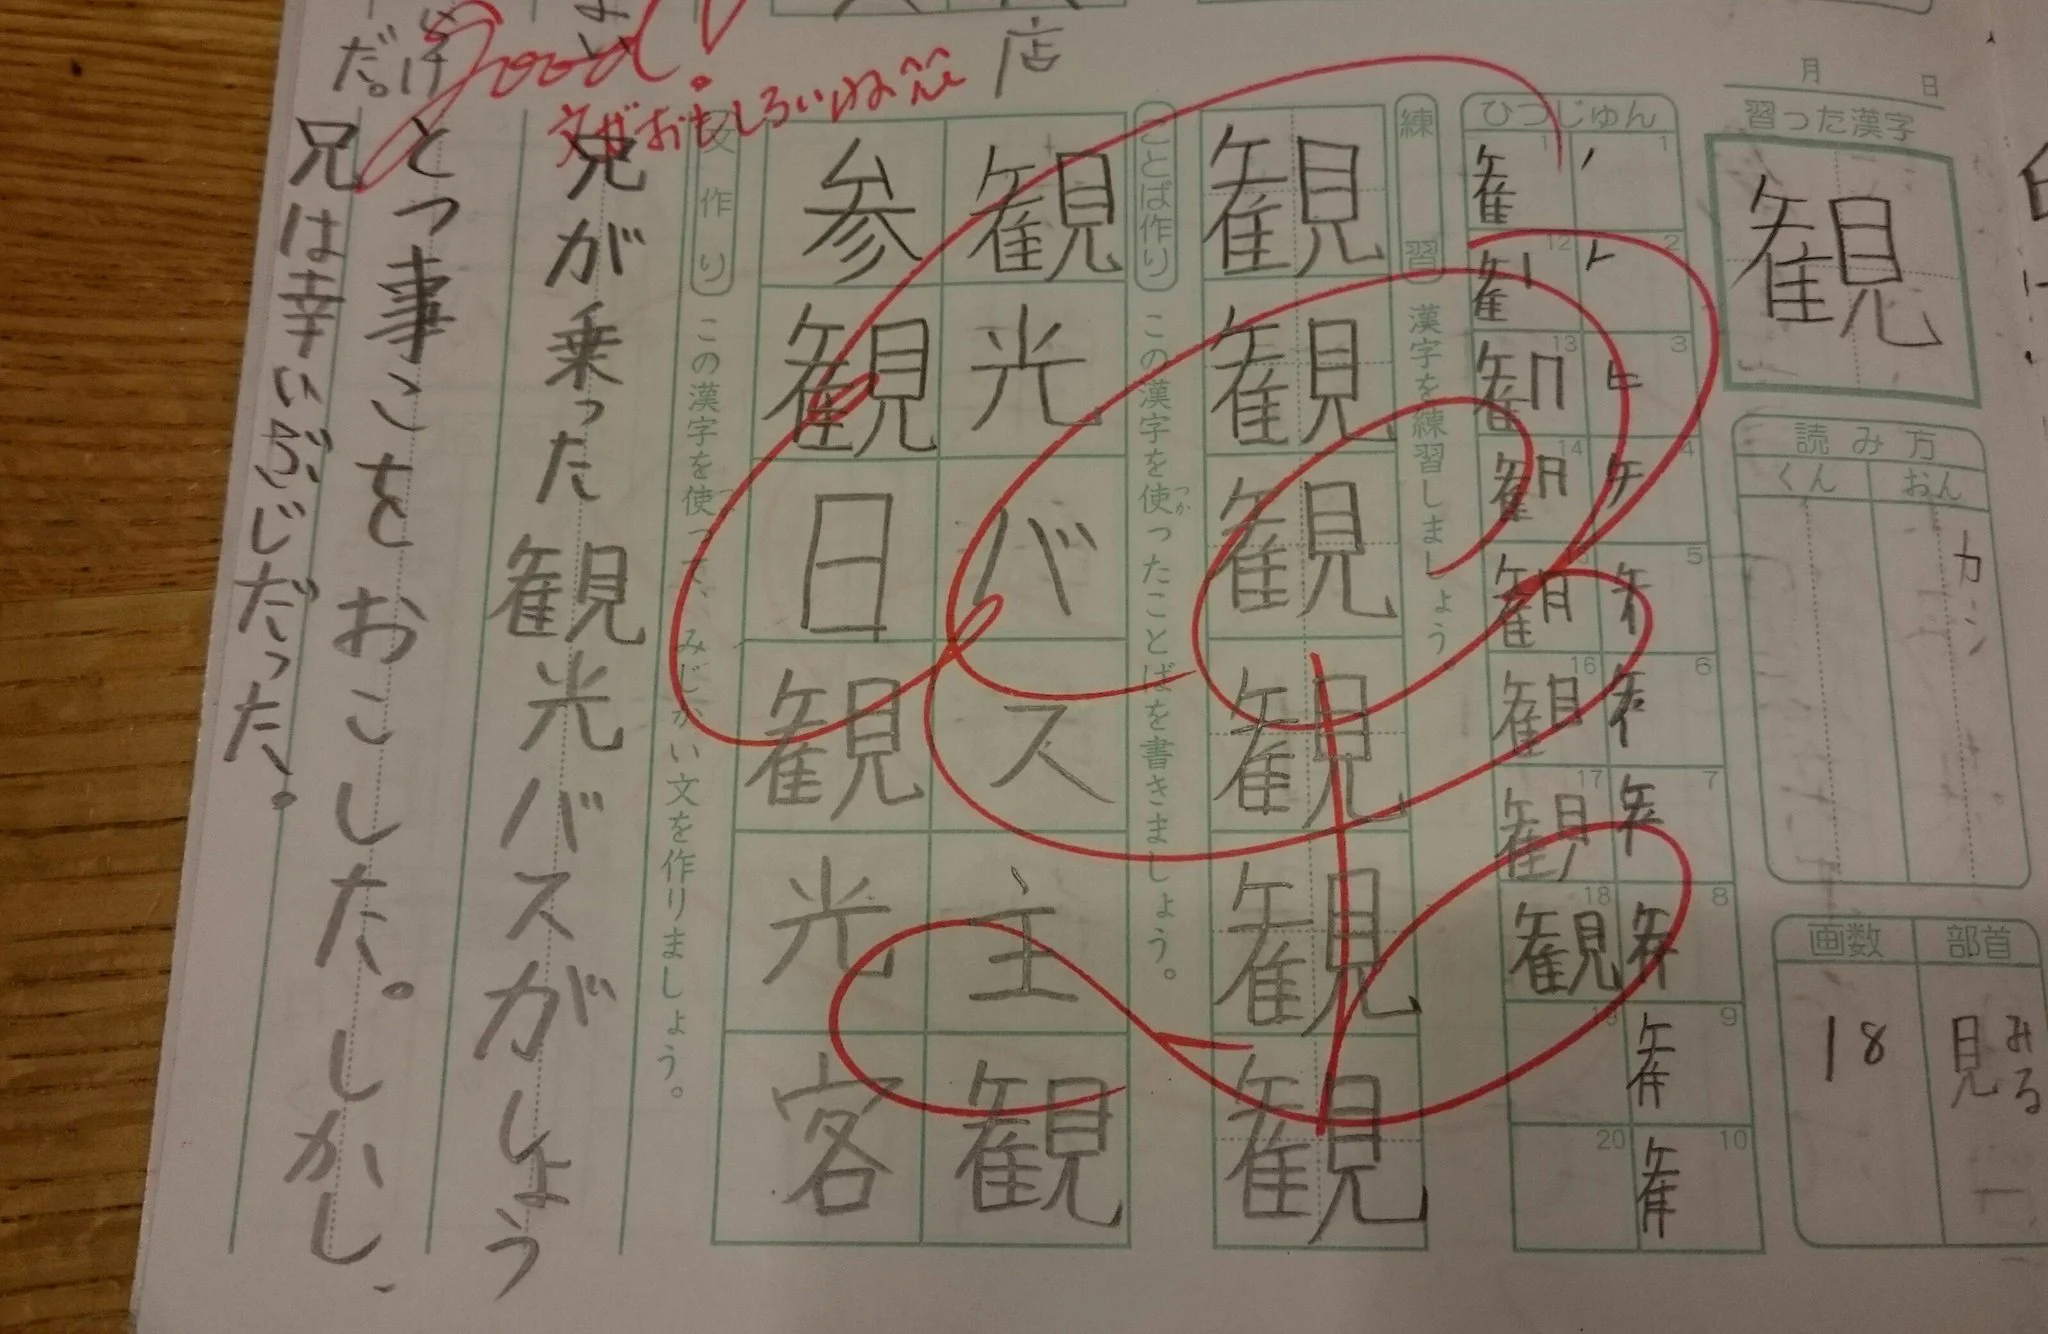 月 日
習った漢字
観
読み方
くん おん
カン
画数 部首
18 見 みる
ひつじゅん
1 2 3 4 5 6 7 8 9 10
12 13 14 16 17 18 19 20
観
練習 漢字を練習しましょう
観観観観観観
ことば作り この漢字を使ったことばを書きましょう。
つか
観光バス主観
参観日観光客
文作り この漢字を使って、みじかい文を作りましょう。
つか
兄が乗った観光バスがしょう
とつ事こをおこした。しかし、
兄は幸いぶじだった。
店
だ。
Good!
文がおもしろいね